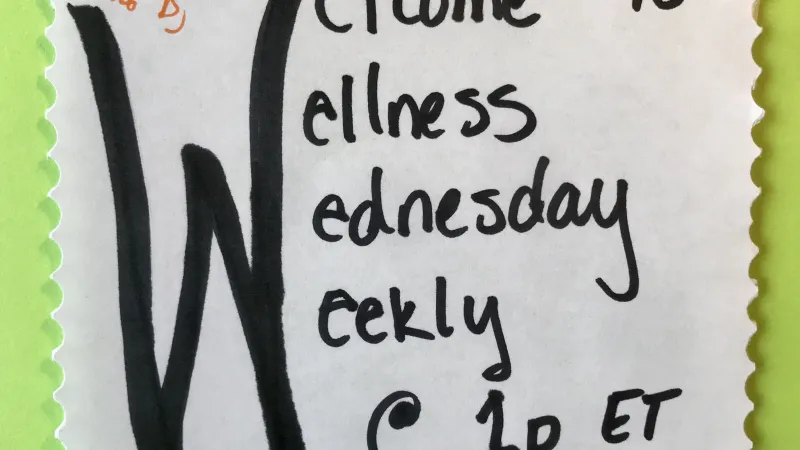 W
elcome to
ellness
ednesday
eekly
@ 1p ET